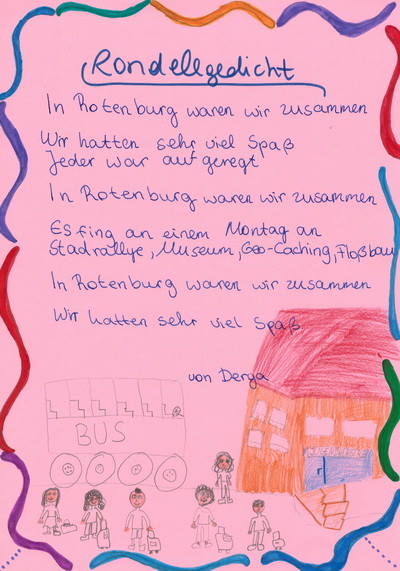 Rondellgedicht
In Rotenburg waren wir zusammen
Wir hatten sehr viel Spaß
Jeder war aufgeregt
In Rotenburg waren wir zusammen
Es fing an einem Montag an
Stadrallye, Museum, Geo-Caching, Floßbau
In Rotenburg waren wir zusammen
Wir hatten sehr viel Spaß.
von Derya
BUS